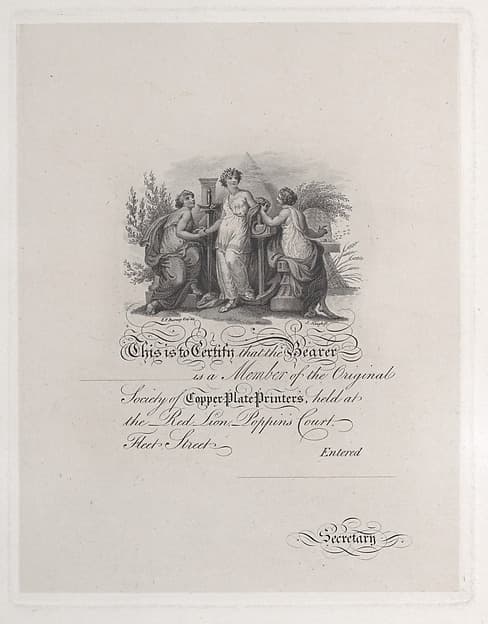 This is to Certify that the Bearer
is a Member of the Original
Society of Copper Plate Printers, held at
the Red Lion, Poppins Court,
Fleet Street
Entered
Secretary